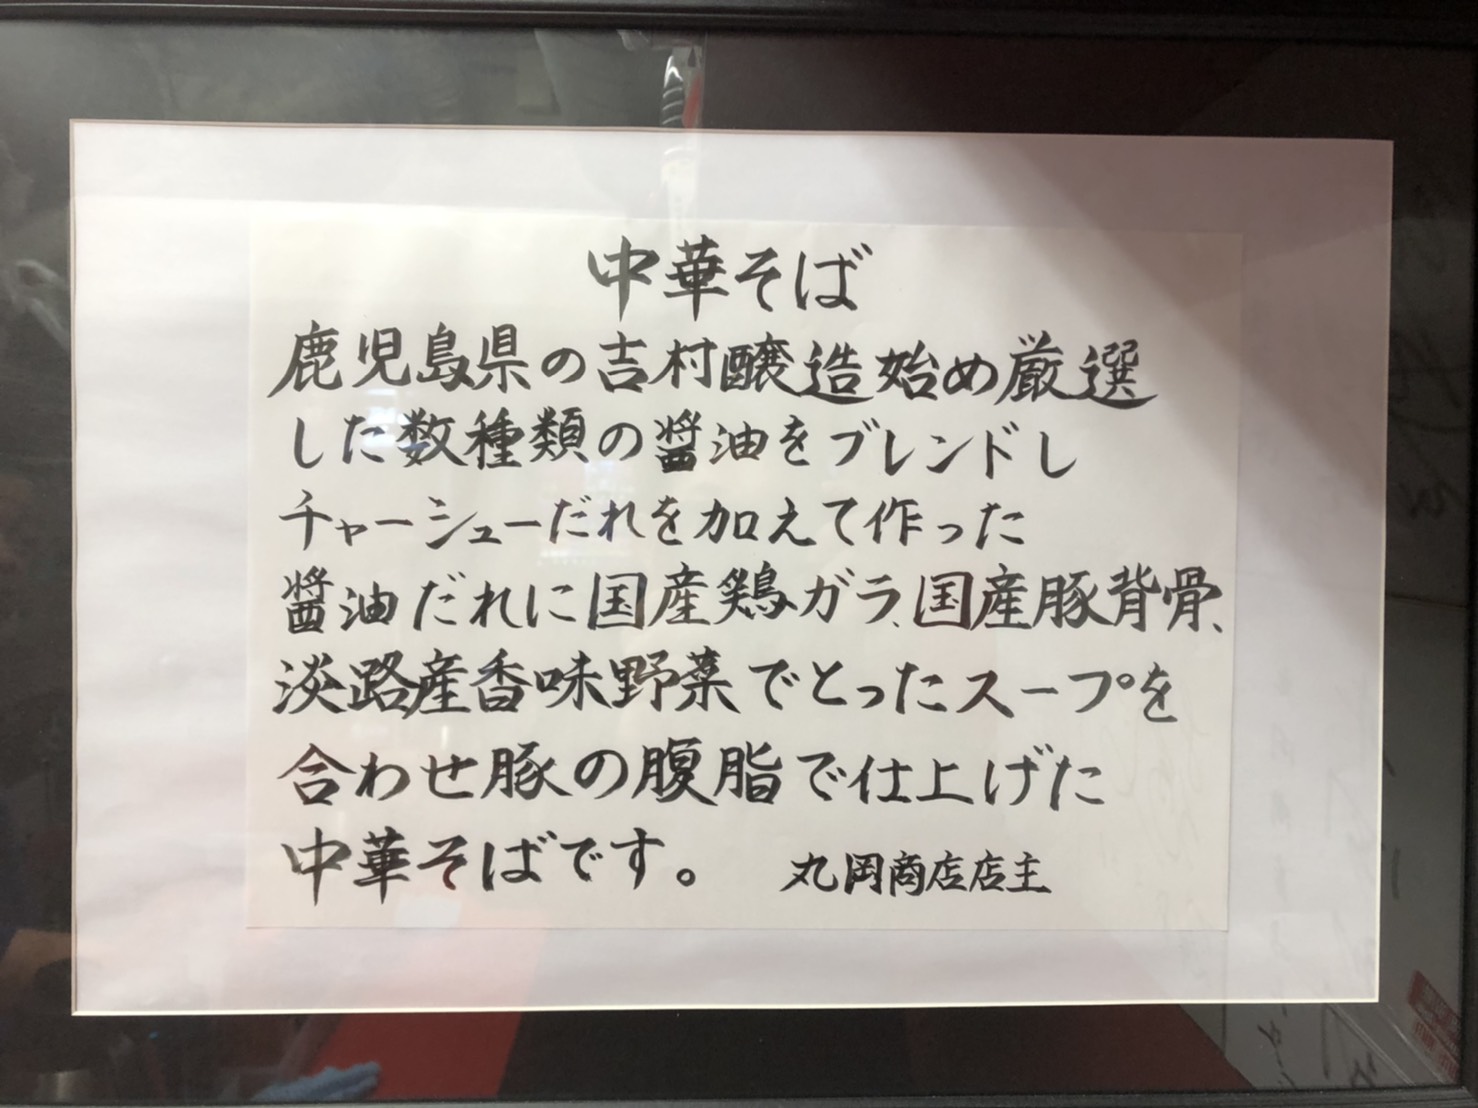 中華そば
鹿児島県の吉村醸造始め厳選
した数種類の醤油をブレンドし
チャーシューだれを加えて作った
醤油だれに国産鶏ガラ、国産豚背骨、
淡路産香味野菜でとったスープを
合わせ豚の腹脂で仕上げた
中華そばです。 丸岡商店店主